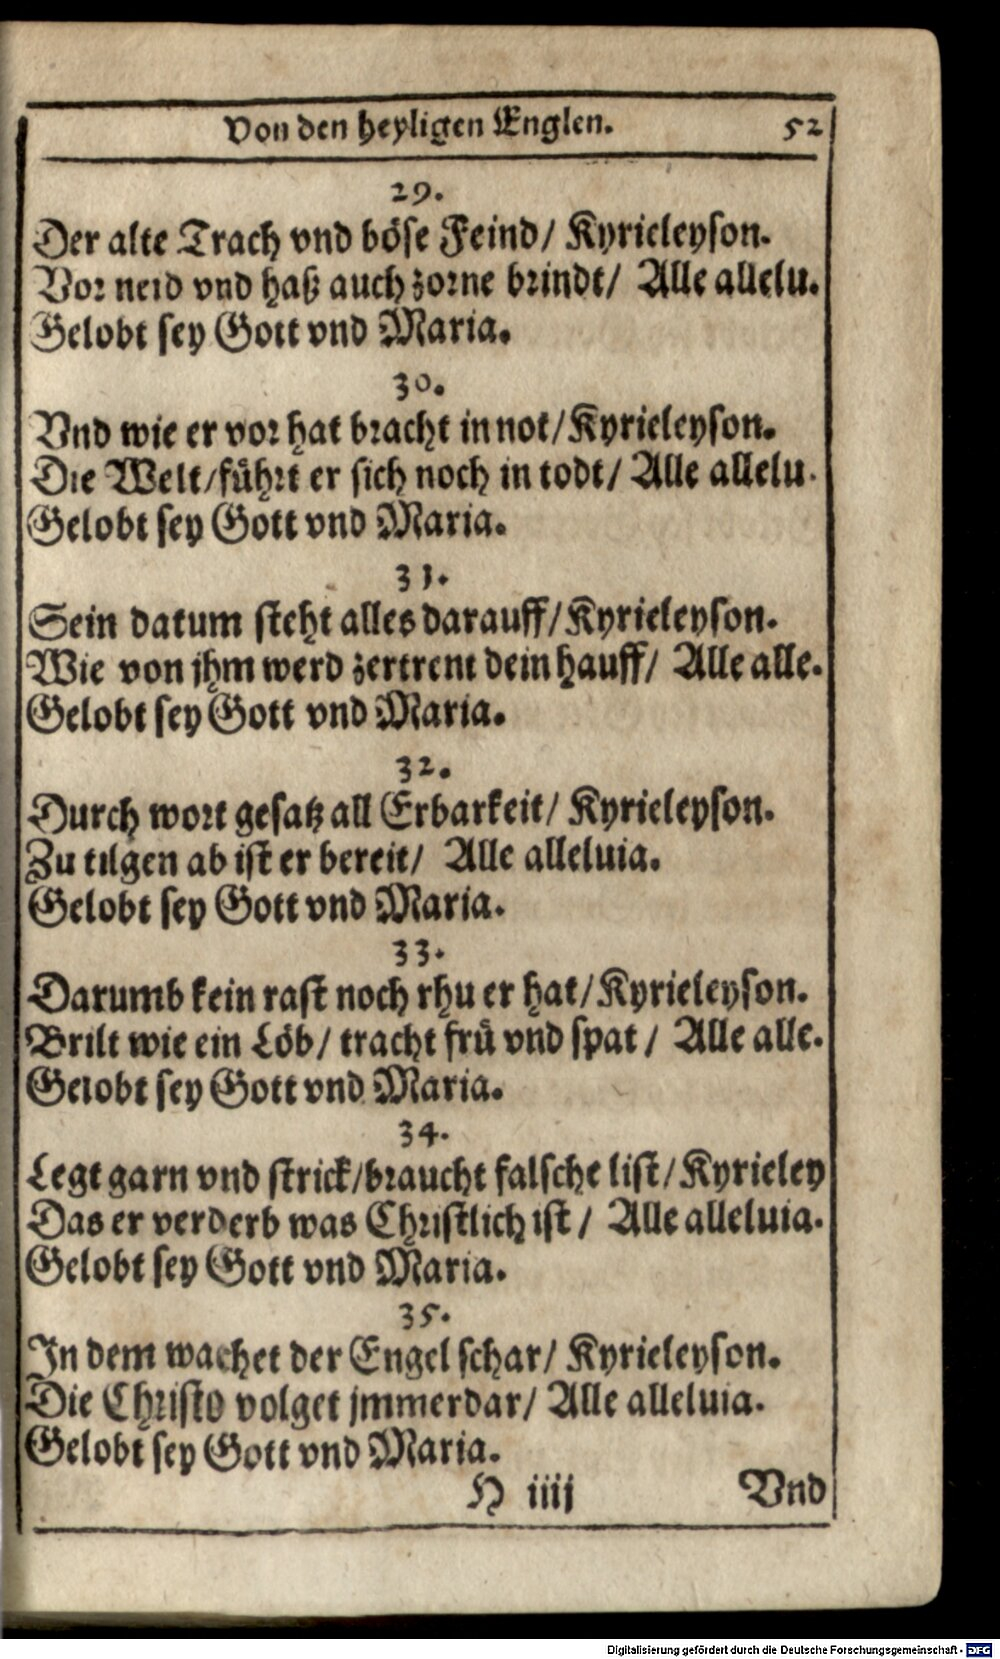 Von den heyligen Englen. 52
29.
Der alte Trach vnd böse Feind/ Kyrieleyson.
Vor neid vnd haß auch zorne brindt/ Alle allelu.
Gelobt sey Gott vnd Maria.
30.
Vnd wie er vor hat bracht in not/ Kyrieleyson.
Die Welt/ führt er sich noch in todt/ Alle allelu.
Gelobt sey Gott vnd Maria.
31.
Sein datum steht alles darauff/ Kyrieleyson.
Wie von jhm werd zertrent dein hauff/ Alle alle.
Gelobt sey Gott vnd Maria.
32.
Durch wort gesatz all Erbarkeit/ Kyrieleyson.
Zu tilgen ab ist er bereit/ Alle alleluia.
Gelobt sey Gott vnd Maria.
33.
Darumb kein rast noch rhu er hat/ Kyrieleyson.
Brilt wie ein Löb/ tracht frü vnd spat/ Alle alle.
Gelobt sey Gott vnd Maria.
34.
Legt garn vnd strick/ braucht falsche list/ Kyrieley
Das er verderb was Christlich ist/ Alle alleluia.
Gelobt sey Gott vnd Maria.
35.
In dem wachet der Engel schar/ Kyrieleyson.
Die Christo volget jmmerdar/ Alle alleluia.
Gelobt sey Gott vnd Maria.
H iiij Vnd
Digitalisierung gefördert durch die Deutsche Forschungsgemeinschaft - DFG